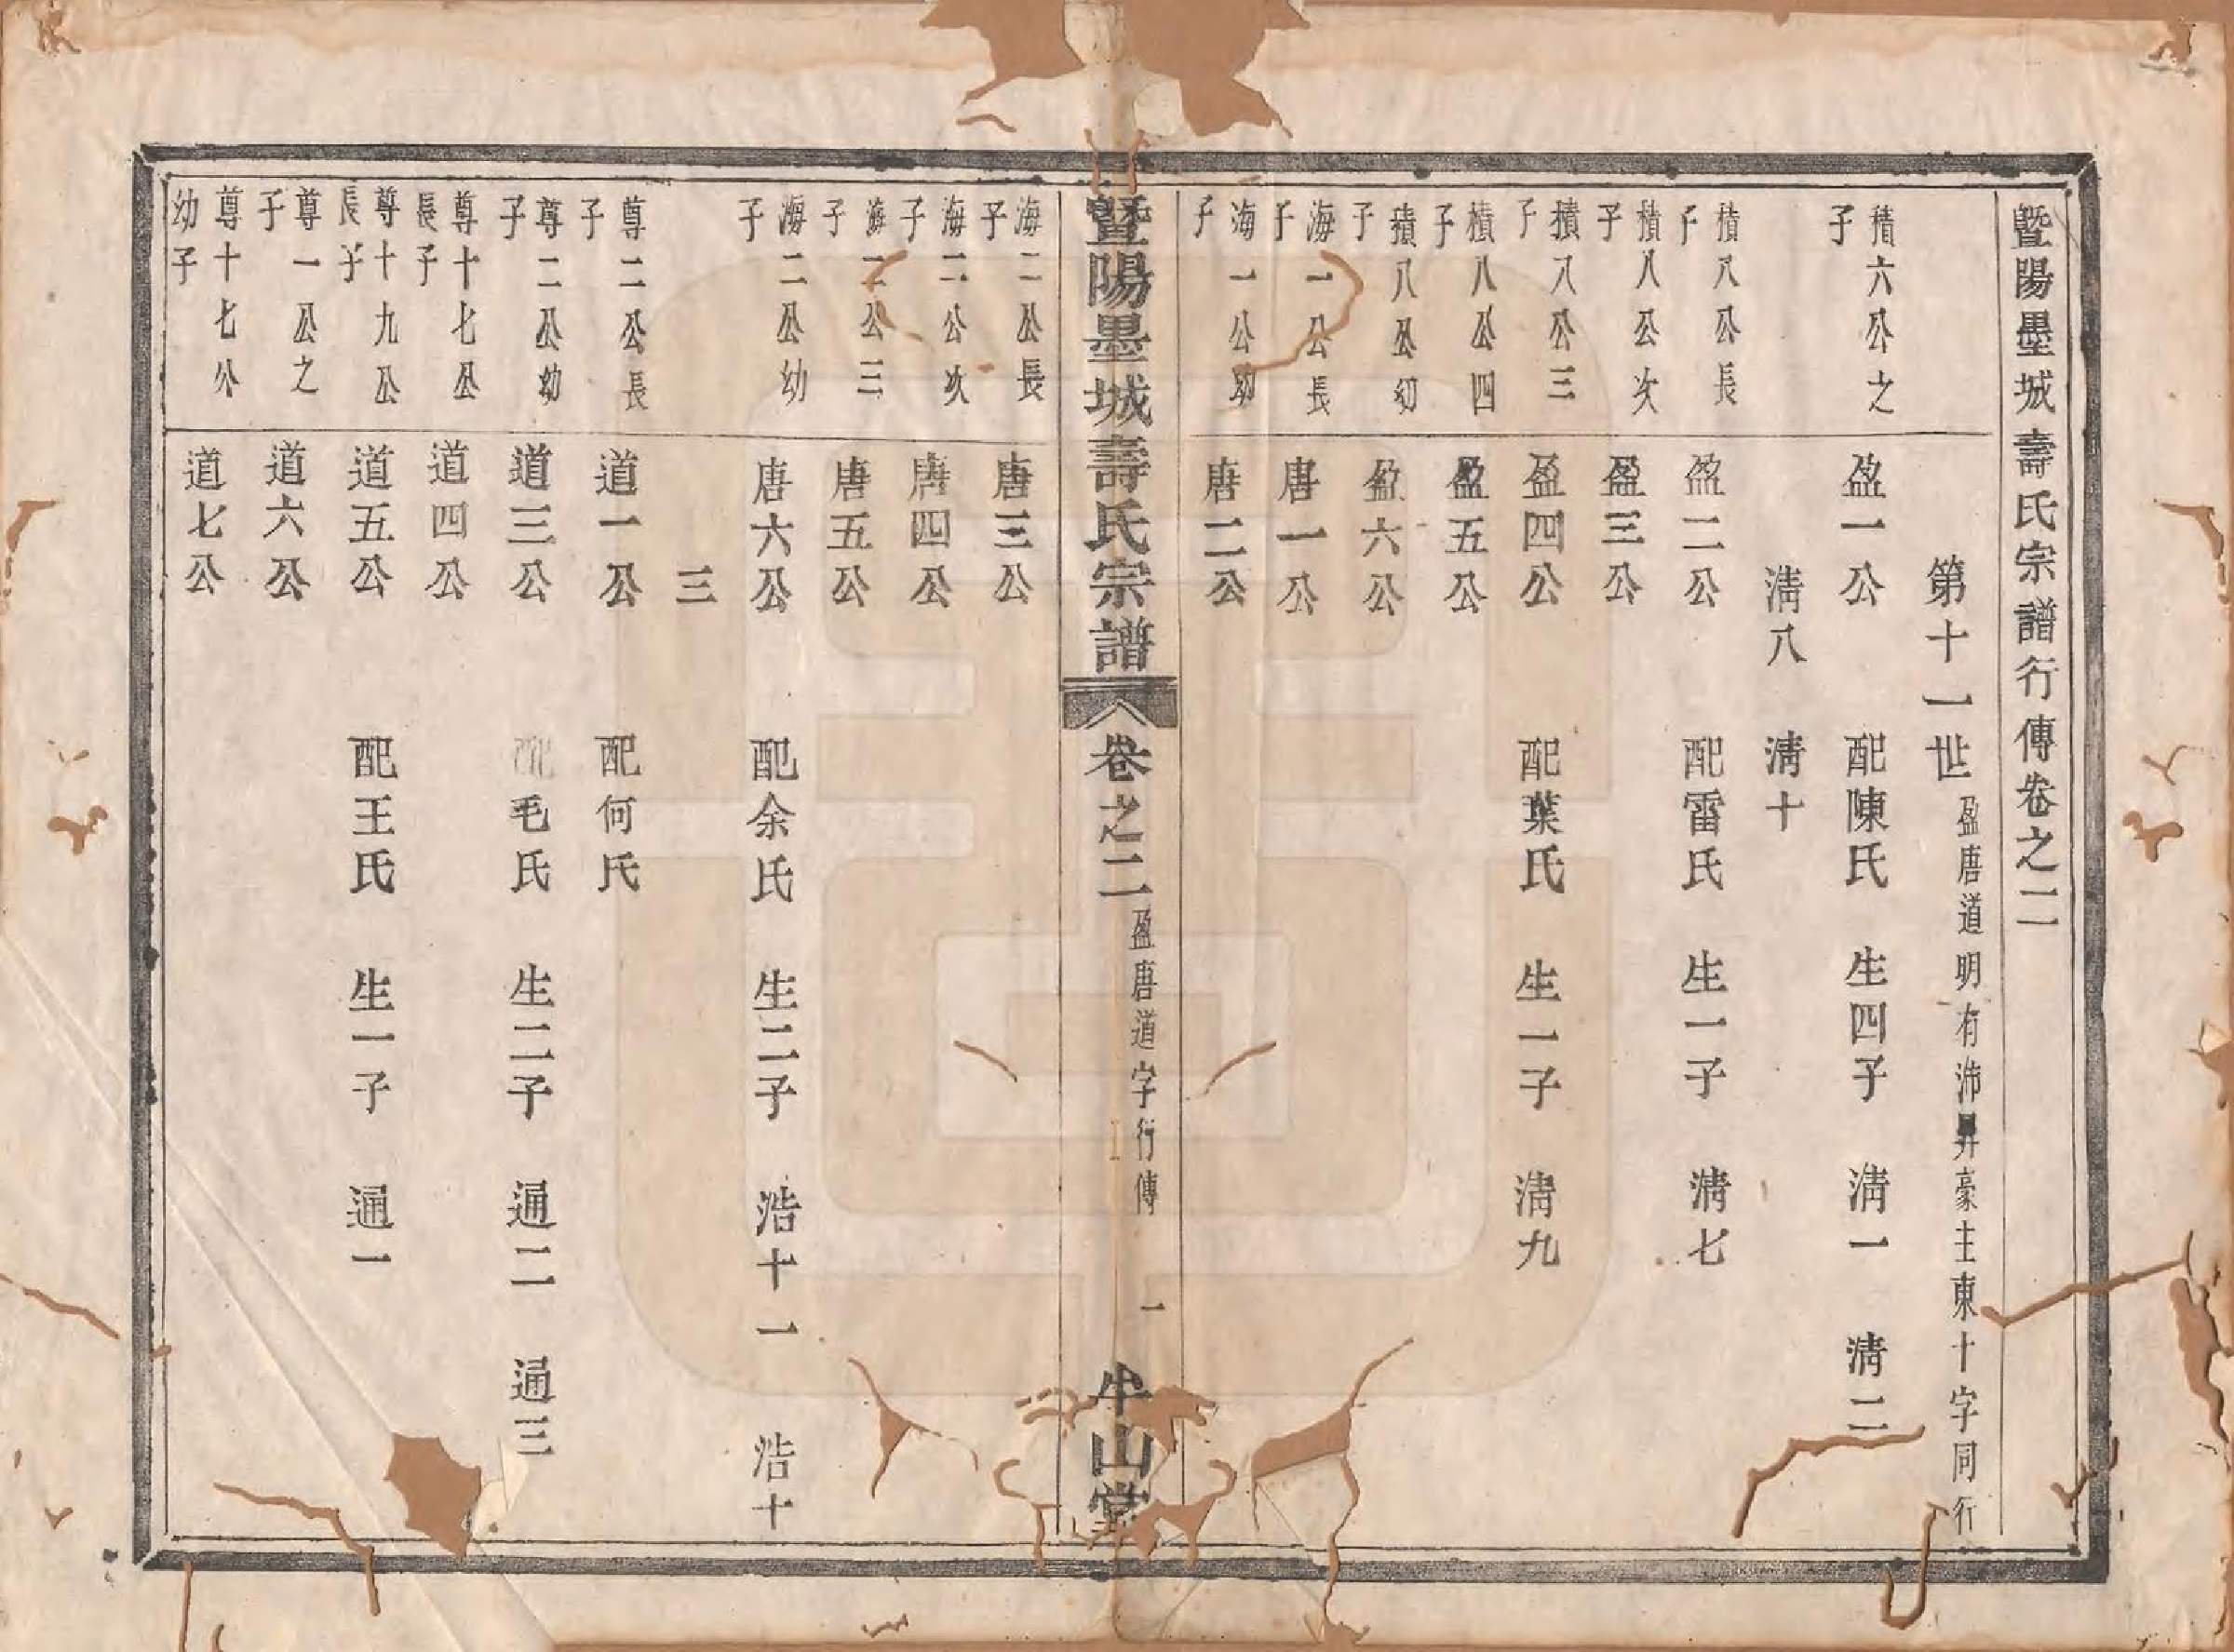 暨陽墨城壽氏宗譜行傳卷之二
第十一世盈唐道明有沛昇豪主東十字同行
積六公之子 盈一公 配陳氏 生四子 淸一 淸二
淸八 淸十
積八公長子 盈二公 配雷氏 生一子 淸七
積八公次子 盈三公
積八公三子 盈四公 配葉氏 生一子 淸九
積八公四子 盈五公
積八公幼子 盈六公
海一公長子 唐一公
海一公幼子 唐二公
暨陽墨城壽氏宗譜 卷之二 盈唐道字行傳 一 山堂
海二公長子 唐三公
海二公次子 唐四公
海二公三子 唐五公
海二公幼子 唐六公 配余氏 生二子 浩十一 浩十
三
尊二公長子 道一公 配何氏
尊二公幼子 道三公 配毛氏 生二子 通二 通三
尊十七公長子 道四公
尊十九公長子 道五公 配王氏 生一子 通一
尊一公之子 道六公
尊十七公幼子 道七公